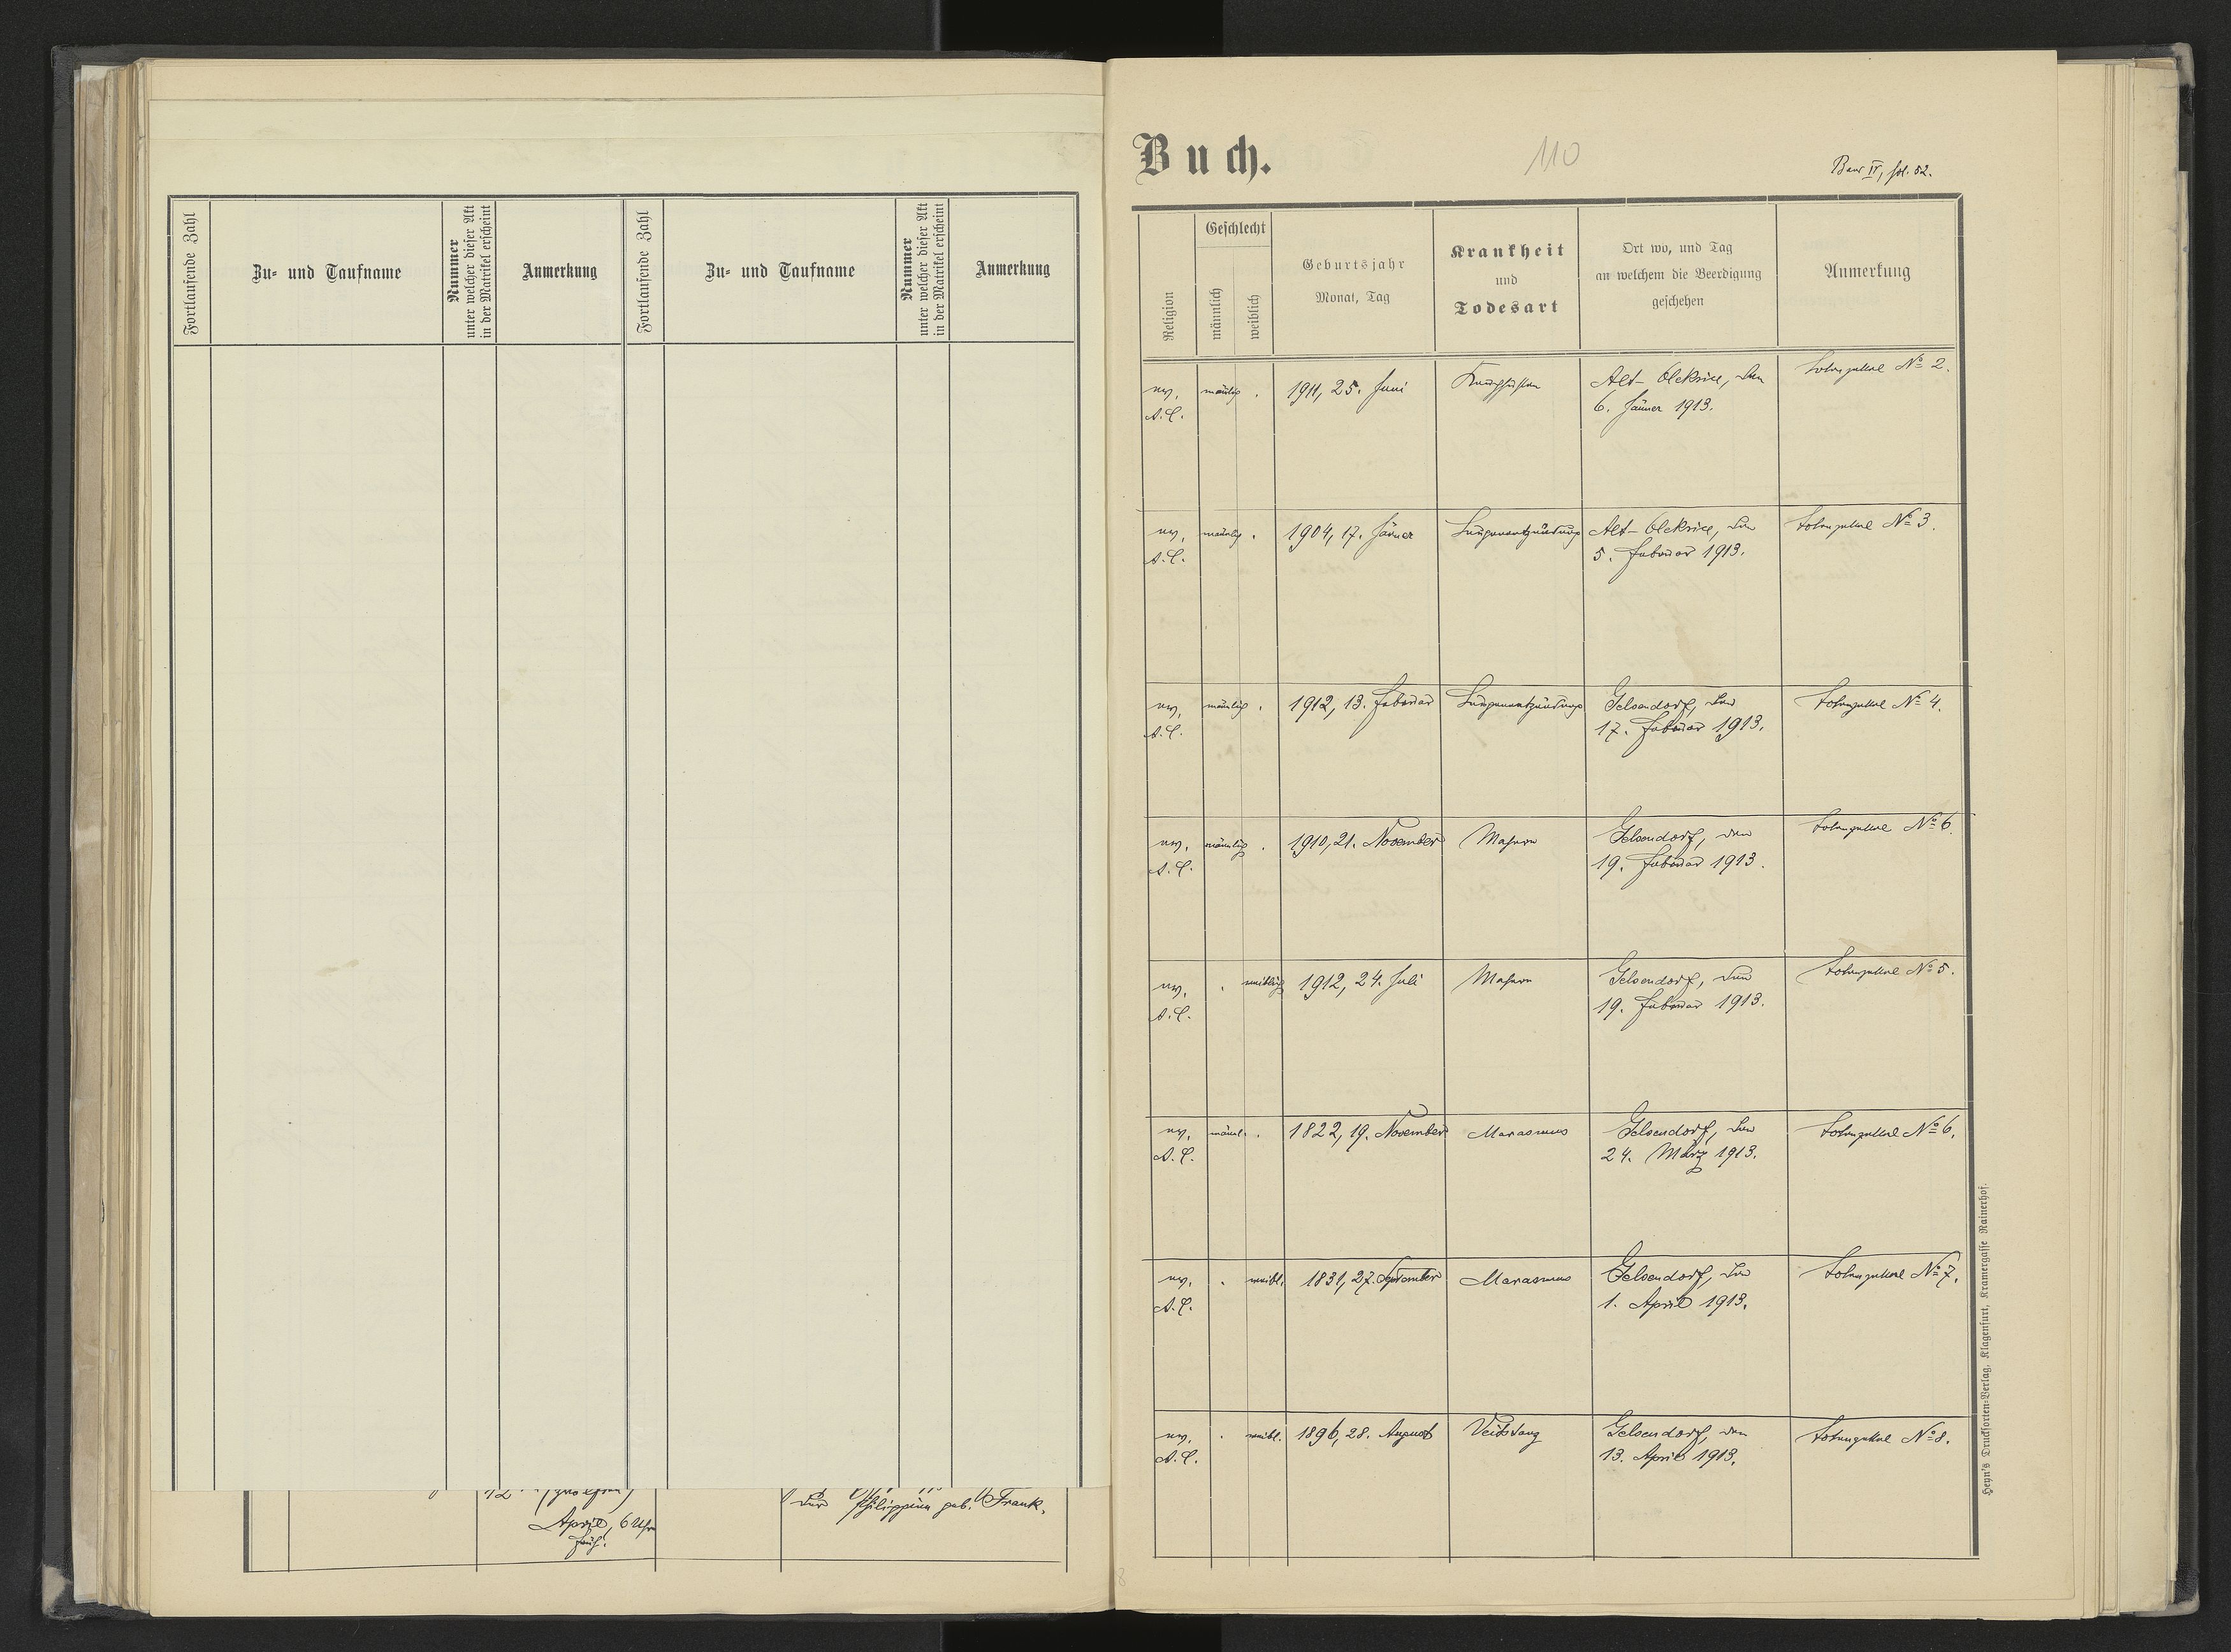 Fortlaufende Zahl
Zu- und Taufname
Nummer
unter welcher dieser Akt
in der Matrikel erscheint
Anmerkung
Fortlaufende Zahl
Zu- und Taufname
Nummer
unter welcher dieser Akt
in der Matrikel erscheint
Anmerkung
April, 6 Uhr
früh.
Philippine geb. Frank.
Buch.
110
Band IV, fol. 52.
Religion
Geschlecht
männlich
weiblich
Geburtsjahr
Monat, Tag
Krankheit
und
Todesart
Ort wo, und Tag
an welchem die Beerdigung
geschehen
Anmerkung
ev. männlich . 1911, 25. Juni Keuchhusten Alt-Oleksice, den
A.C. 6. Jänner 1913.
№ 2.
ev. männlich . 1904, 17. Jänner Lungenentzündung Alt-Oleksice, den
A.C. 5. Februar 1913.
№ 3.
ev. männlich . 1912, 13. Februar Lungenentzündung Gelsendorf, den
A.C. 17. Februar 1913.
№ 4.
ev. männlich . 1910, 21. November Masern Gelsendorf, den
A.C. 19. Februar 1913.
№ 6.
ev. . weiblich 1912, 24. Juli Masern Gelsendorf, den
A.C. 19. Februar 1913.
№ 5.
ev. männl. . 1822, 19. November Marasmus Gelsendorf, den
A.C. 24. März 1913.
№ 6.
ev. . weibl. 1831, 27. September Marasmus Gelsendorf, den
A.C. 1. April 1913.
№ 7.
ev. . weibl. 1896, 28. August Veitstanz Gelsendorf, den
A.C. 13. April 1913.
№ 8.
Heyn's Drucksorten-Verlag, Klagenfurt, Kramergasse Rainerhof.